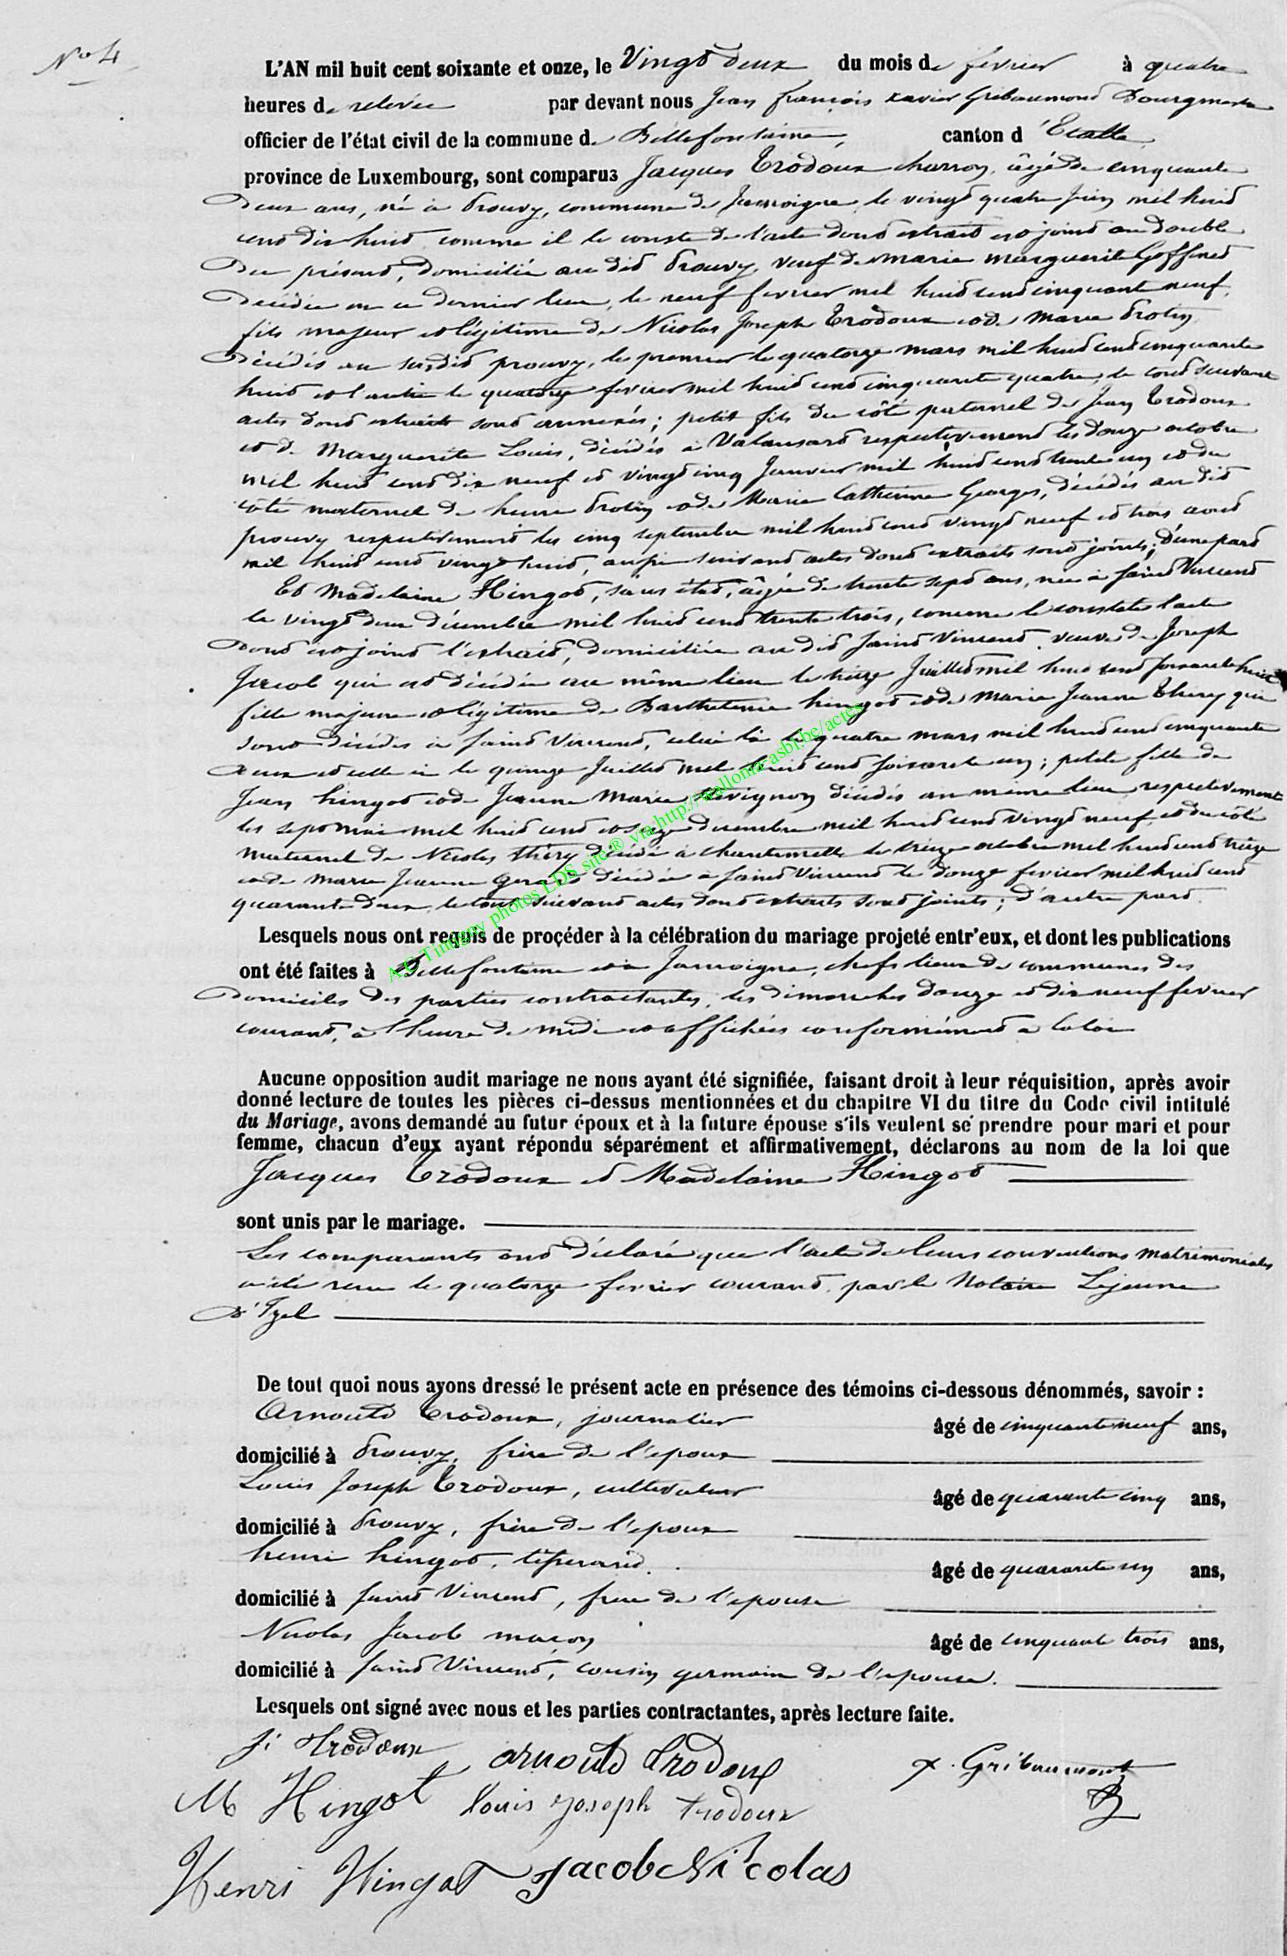 N° 4
L'AN mil huit cent soixante et onze, le Vingt deux du mois de fevrier à quatre
heures de relevée par devant nous Jean françois xavier Gribaumont Bourgmestre
officier de l'état civil de la commune de Bellefontaine, canton d'Etalle,
province de Luxembourg, sont comparus Jacques Trodoux charron, âgé de cinquante
Deux ans, né à Prouvy, commune de Jamoigne le vingt quatre juin mil huit
cent dix huit comme il le conste de l'acte dont extrait est joint au double
Du présent, domicilié au dit Prouvy, veuf de Marie Marguerite Goffinet
Décédée en ce dernier lieu, le neuf fevrier mil huit cent cinquant neuf,
fils majeur et légitime de Nicolas Joseph Trodoux et de Marie Protin
Décédés au susdit prouvy, le premier le quatorze mars mil huit cent cinquante
huit et l'autre le quatorze fevrier mil huit cent cinquante quatre, le tout suivant
actes dont extraits sont annexés; petit fils du côté paternel de Jean Trodoux
et de Marguerite Louis, décédés à Valansart respectivement les douze octobre
mil huit cent dix neuf et vingt cinq Janvier mil huit cent trente un et du
côté maternel de henri Protin et de Marie Catherine Georges, décédés au dit
prouvy respectivement les cinq septembre mil huit cent vingt neuf et trois aout
mil huit cent vingt huit, aussi suivant actes dont extraits sont joints; d'une part
Et Madelaine Hingot, sans état, âgée de trente sept ans, née à saint Vincent
le vingt deux décembre mil huit cent trente trois, comme le constate l'acte
Dont est joint l'extrait, domiciliée au dit saint Vincent, veuve de Joseph
Jacob qui est décédé au même lieu le treize Juillet mil huit cent soixante huit
fille majeure et légitime de Barthelemie hingot et de Marie Jeanne Thery qui
sont décédés à saint Vincent, celui là le quatre mars mil huit cent cinquante
Deux et celle ci le quinze Juillet mil huit cent soixante un; petite fille de
Jean hingot et de Jeanne Marie décédés au même lieu respectivement
les sept mai mil huit cent et seize decembre mil huit cent vingt neuf, et du côté
maternel de Nicolas théry décédé à chantemelle le treize octobre mil huit cent treize
et de Marie Jeanne décédée à saint Vincent le douze fevrier mil huit cent
quarante deux, le tout suivant actes dont extraits sont joints; d'autre part.
A.G Timigny photos LDS site® via http://wallonia-asbl.be/actes
Lesquels nous ont requis de proçéder à la célébration du mariage projeté entr'eux, et dont les publications
ont été faites à Bellefontaine et à Jamoigne, chefs lieux de communes des
Domiciles des parties contractantes, les dimanches douze et dix neuf fevrier
courant, à l'heure de midi et affichées conformément à la loi
Aucune opposition audit mariage ne nous ayant été signifiée, faisant droit à leur réquisition, après avoir
donné lecture de toutes les pièces ci-dessus mentionnées et du chapitre VI du titre du Code civil intitulé
du Mariage, avons demandé au futur époux et à la future épouse s'ils veulent se prendre pour mari et pour
femme, chacun d'eux ayant répondu séparément et affirmativement, déclarons au nom de la loi que
Jacques Trodoux et Madelaine Hingot
sont unis par le mariage.
Les comparants ont déclaré que l'acte de leurs conventions matrimoniales
a été reçu le quatorze fevrier courant, par le Notaire Lejeune
D'Izel
De tout quoi nous ayons dressé le présent acte en présence des témoins ci-dessous dénommés, savoir :
Arnould Trodoux, journalier âgé de cinquante neuf ans,
domicilié à Prouvy, frère de l'epoux
Louis Joseph Trodoux, cultivateur âgé de quarante cinq ans,
domicilié à Prouvy, frère de l'epoux
henri hingot, tisserand. âgé de quarante un ans,
domicilié à saint Vincent, frere de l'epouse
Nicolas Jacob maçon âgé de cinquante trois ans,
domicilié à saint Vincent, cousin germain de l'epouse.
Lesquels ont signé avec nous et les parties contractantes, après lecture faite.
J. Trodoux arnould trodoux x. Gribaumont
M Hingot louis joseph trodoux
Henri Hingot Jacob Nicolas